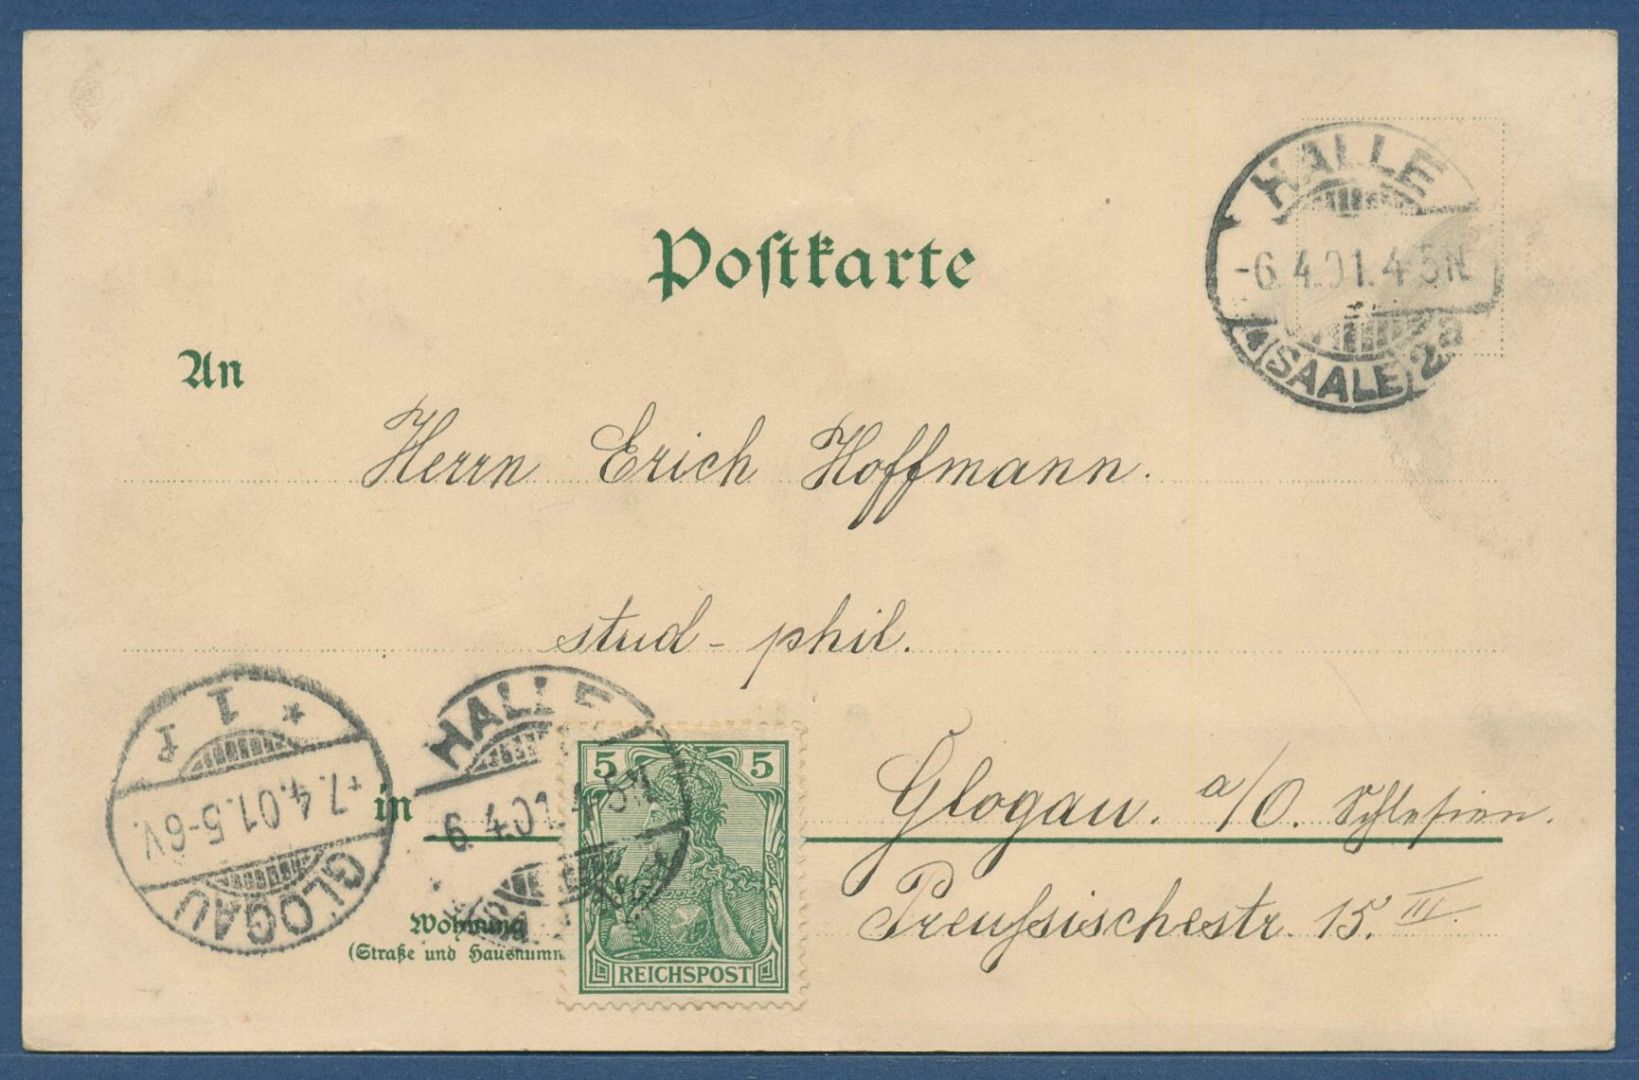 Postkarte
HALLE
-6.4.01.4-5N.
(SAALE) 2a
An
Herrn Erich Hoffmann.
stud - phil.
1
*7.4.01.5-6V.
GLOGAU
HALLE
-6.4.01.4-5N.
5 5
REICHSPOST
in Glogau. a/O. Schlesien.
Wohnung Preussischestr. 15. III.
(Straße und Hausnumm